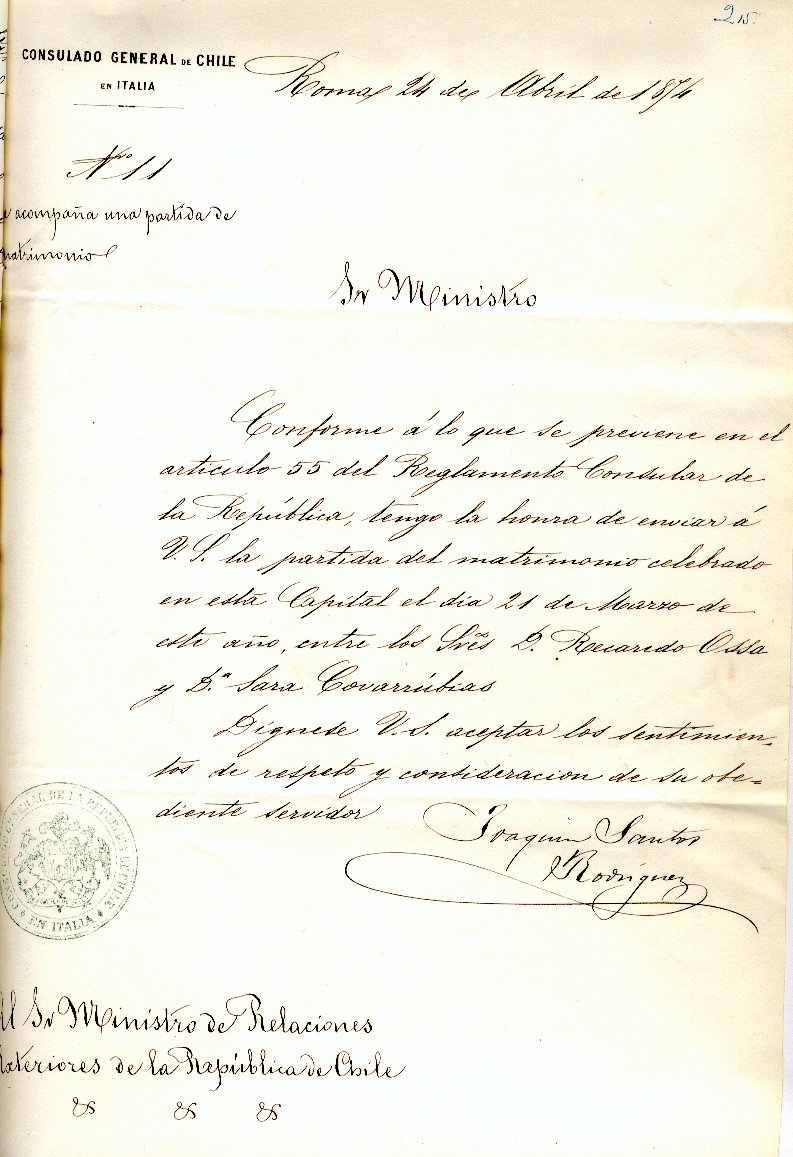 215
CONSULADO GENERAL DE CHILE
EN ITALIA
Roma 24 de Abril de 1874
Nro 11
e acompaña una partida de
matrimonio
Sr Ministro
Conforme á lo que se previene en el
artículo 55 del Reglamento Consular de
la República, tengo la honra de enviar á
V. S. la partida del matrimonio celebrado
en esta Capital el dia 21 de Marzo de
este año, entre los Sres D. Recaredo Ossa
y D.a Sara Covarrúbias
Dígnese V. S. aceptar los sentimien-
tos de respeto y consideracion de su obe-
diente servidor
Joaquin Santos
Rodríguez
CONSULADO GENERAL DE LA REPUBLICA DE CHILE
EN ITALIA
Al Sr Ministro de Relaciones
Exteriores de la República de Chile
& & &